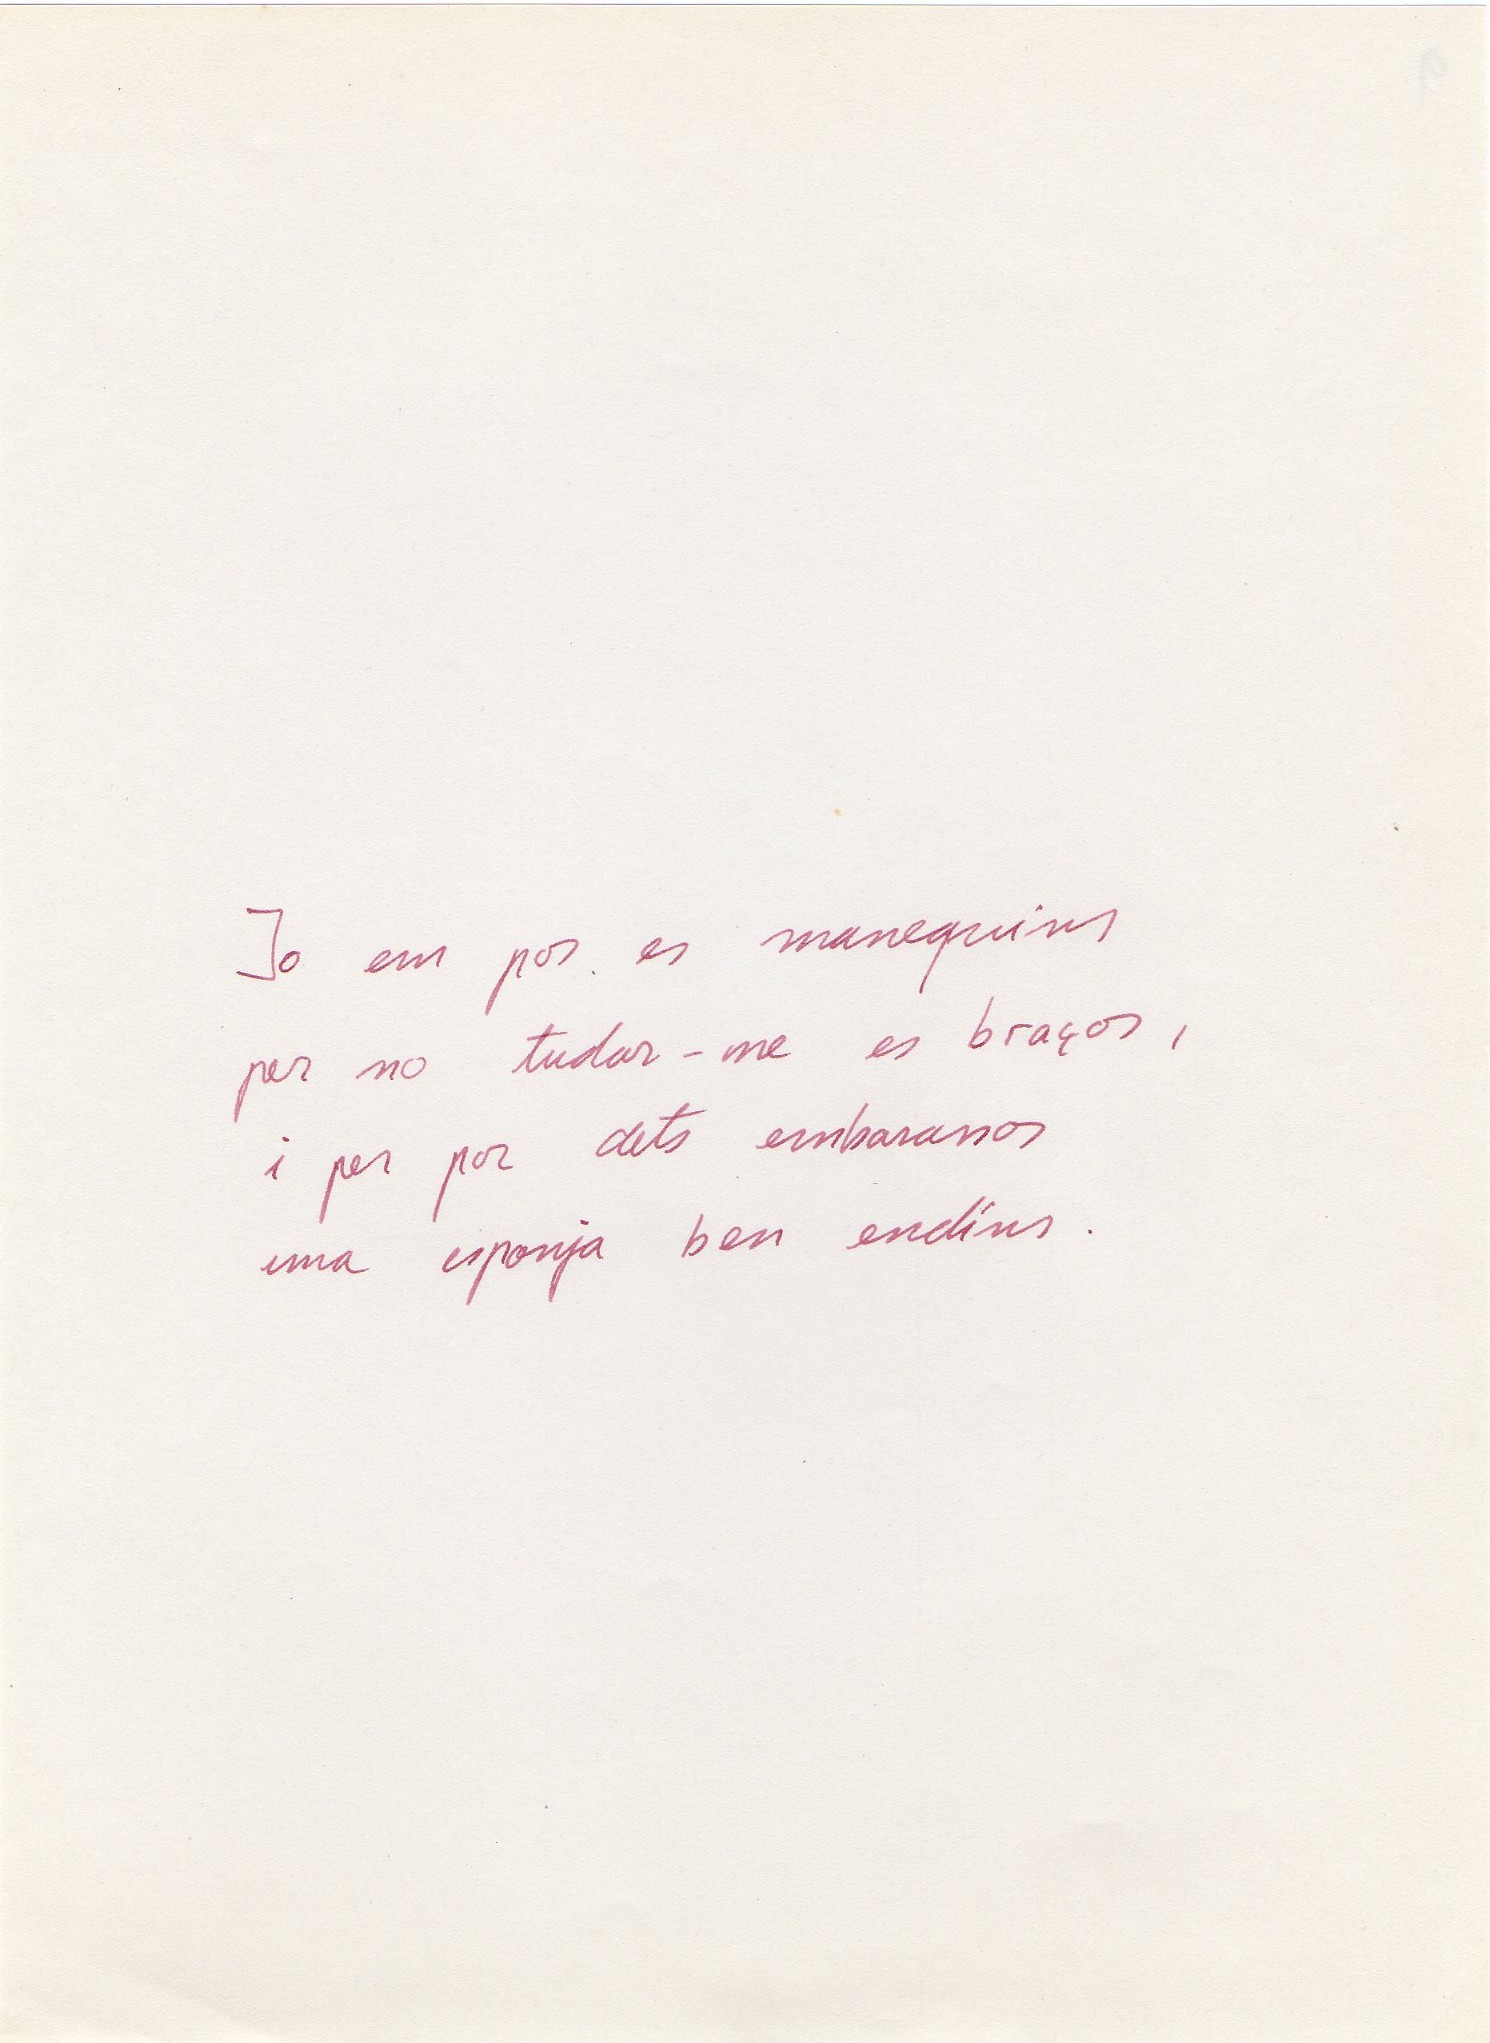 Jo em pos es manequins
per no tudar-me es braços,
i per por dets embarassos
una esponja ben endins.